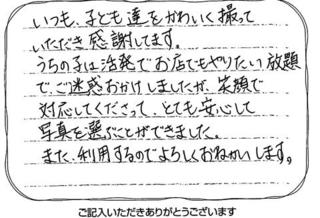 いつも、子ども達をかわいく撮って
いただき感謝してます。
うちの子は活発でお店でもやりたい放題
で、ご迷惑おかけしましたが、笑顔で
対応してくださって、とても安心して
写真を選ぶことができました。
また、利用するのでよろしくおねがいします。
ご記入いただきありがとうございます